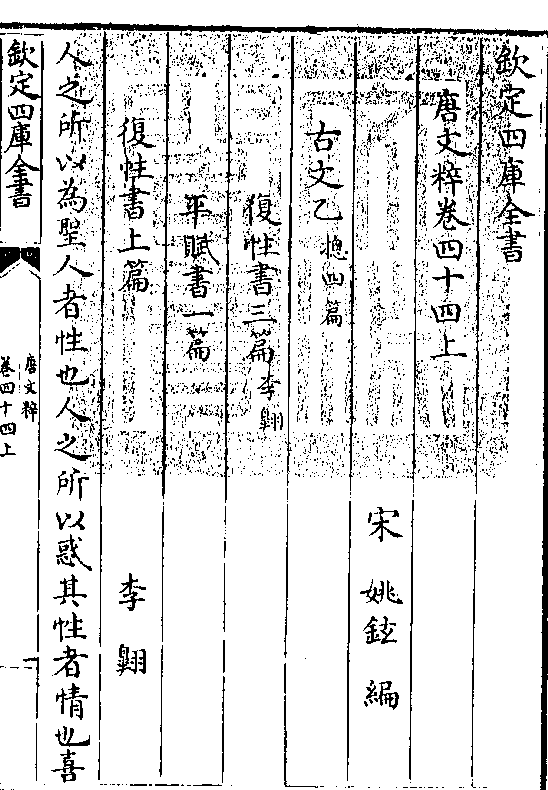 欽定四庫全書
唐文粹卷四十四上
宋 姚鉉 編
古文乙 摠四篇
復性書三篇 李翺
平賦書一篇
復性書上篇 李翺
人之所以為聖人者性也人之所以惑其性者情也喜
欽定四庫全書
唐文粹
卷四十四上